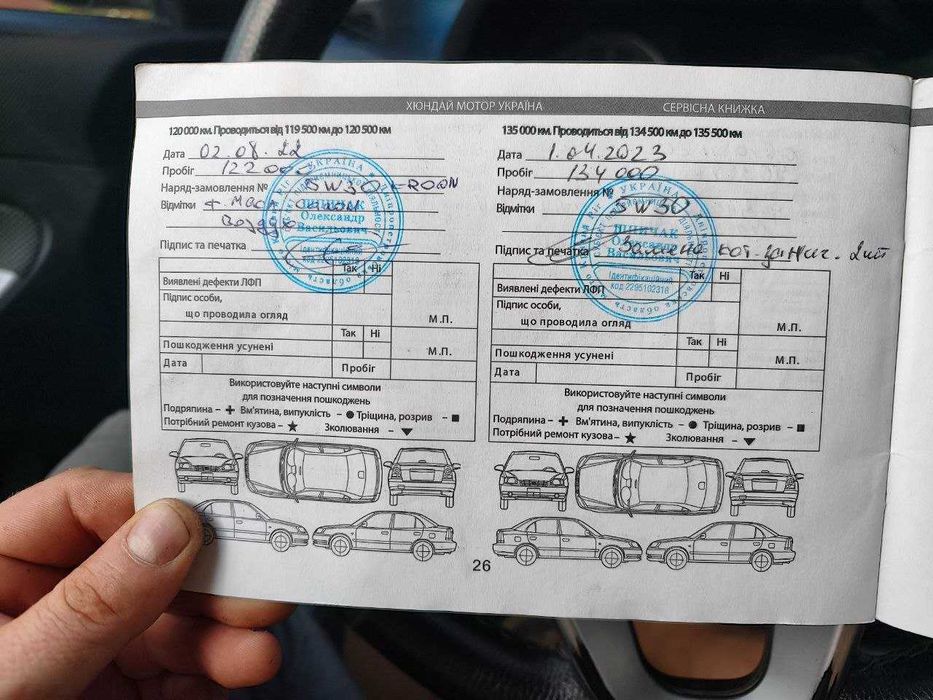 ХЮНДАЙ МОТОР УКРАЇНА
СЕРВІСНА КНИЖКА
120 000 км. Проводиться від 119 500 км до 120 500 км
Дата 02.08.22
Пробіг 122 000
Наряд-замовлення № 5W30
Відмітки
Підпис та печатка
УКРАЇНА
Олександр
Васильович
Так Ні
Виявлені дефекти ЛФП
Підпис особи,
що проводила огляд М.П.
Так Ні
Пошкодження усунені М.П.
Дата Пробіг
Використовуйте наступні символи
для позначення пошкоджень
Подряпина – Вм'ятина, випуклість – Тріщина, розрив –
Потрібний ремонт кузова – Зколювання –
135 000 км. Проводиться від 134 500 км до 135 500 км
Дата 1.04.2023
Пробіг 134 000
Наряд-замовлення №
Відмітки 5W30
Підпис та печатка Замена
УКРАЇНА
Ідентифікаційний
код 2295102318
Так Ні
Виявлені дефекти ЛФП
Підпис особи,
що проводила огляд М.П.
Так Ні
Пошкодження усунені М.П.
Дата Пробіг
Використовуйте наступні символи
для позначення пошкоджень
Подряпина – Вм'ятина, випуклість – Тріщина, розрив –
Потрібний ремонт кузова – Зколювання –
26